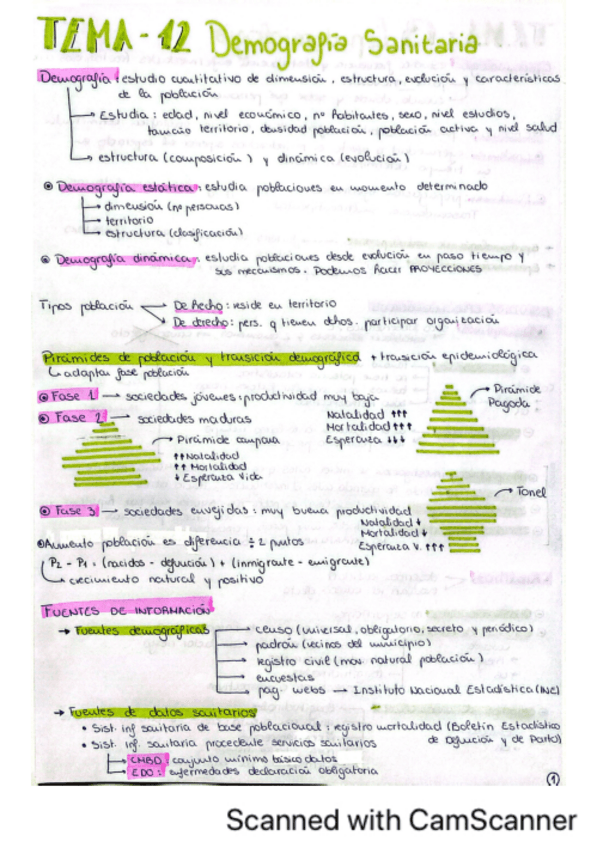 TEMA-12 Demografía Sanitaria
Demografía: estudio cuantitativo de dimensión, estructura, evolución y características
de la población
→ Estudia: edad, nivel económico, nº habitantes, sexo, nivel estudios,
tamaño territorio, densidad población, población activa y nivel salud
→ estructura (composición) y dinámica (evolución)
Demografía estática: estudia poblaciones en momento determinado
→ dimensión (nº personas)
→ territorio
→ estructura (clasificación)
Demografía dinámica: estudia poblaciones desde evolución en paso tiempo y
sus mecanismos. Podemos hacer PROYECCIONES
Tipos población → De hecho: reside en territorio
→ De derecho: pers. q tienen dchos. participar organización
Pirámides de población y transición demográfica + transición epidemiológica
↳ adapta fase población
Fase 1 → sociedades jóvenes: productividad muy baja
→ Pirámide Pagoda
Natalidad ↑↑↑
Mortalidad ↑↑↑
Esperanza ↓↓↓
Fase 2 → sociedades maduras
→ Pirámide campana
↑↑ Natalidad
↑↑ Mortalidad
↓ Esperanza Vida
→ Tonel
Fase 3 → sociedades envejidas: muy buena productividad
Natalidad ↓
Mortalidad ↓
Esperanza V. ↑↑↑
Aumento población es diferencia ÷ 2 puntos
P2 - P1 = (nacidos - defunción) + (inmigrante - emigrante)
↳ crecimiento natural y positivo
FUENTES DE INFORMACIÓN
→ Fuentes demográficas
→ censo (universal, obligatorio, secreto y periódico)
→ padrón (vecinos del municipio)
→ registro civil (mov. natural población)
→ encuestas
→ pag. webs → Instituto Nacional Estadística (INE)
→ Fuentes de datos sanitarios
• Sist. inf sanitaria de base poblacional: registro mortalidad (Boletín Estadístico
de Defunción y de Parto)
• Sist. inf. sanitaria procedente servicios sanitarios
→ CMBD: conjunto mínimo básico datos
→ EDO: enfermedades declaración obligatoria
1
Scanned with CamScanner